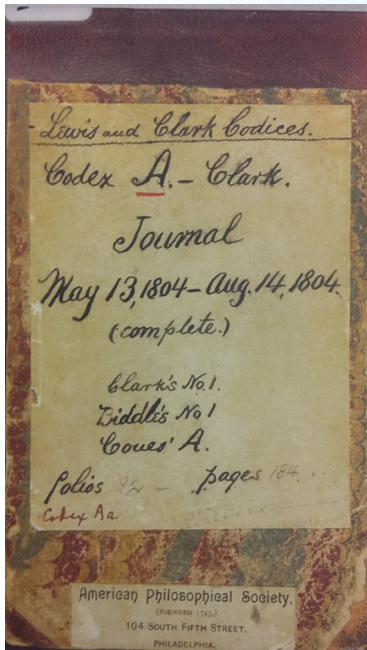 Lewis and Clark Codices.
Codex A. – Clark.
Journal
May 13, 1804 – Aug. 14, 1804.
(complete.)
Clark's No 1.
Biddle's No 1
Coues' A.
folios 92 – pages 184
Codex Aa
American Philosophical Society,
(FOUNDED 1743,)
104 SOUTH FIFTH STREET,
PHILADELPHIA.